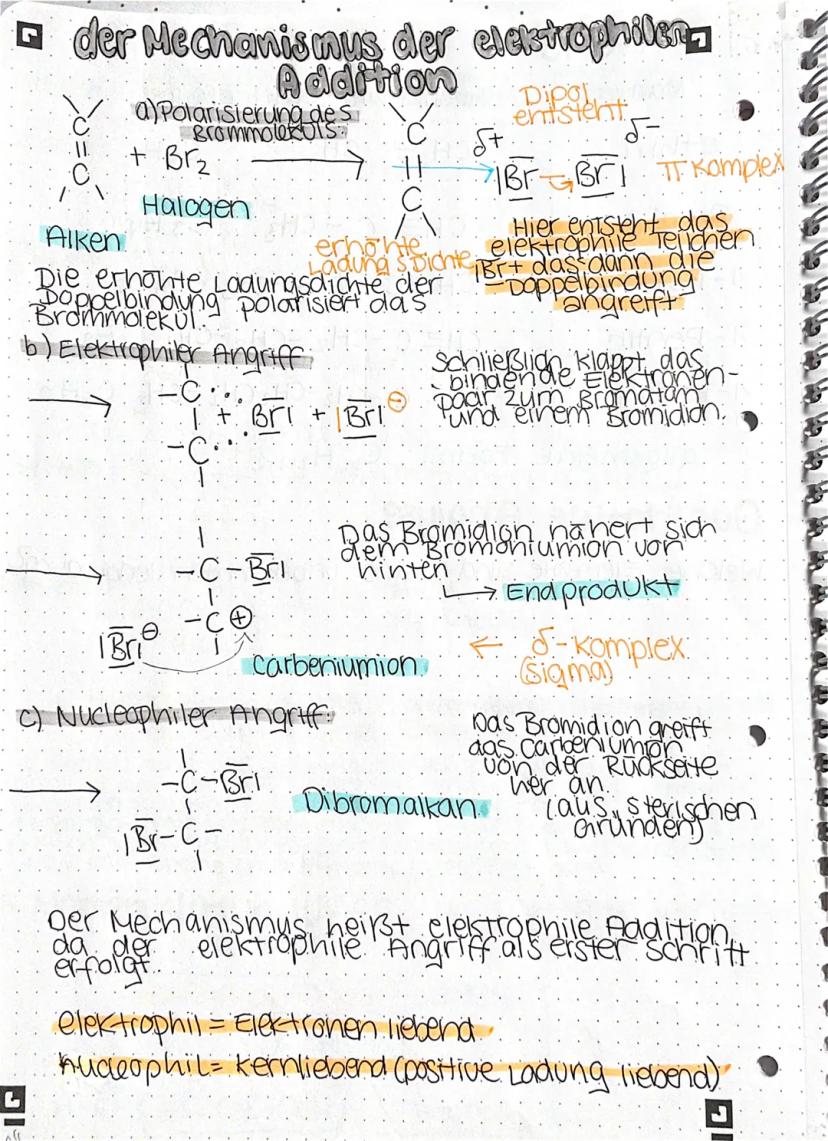 der Mechanismus der elektrophilen
Addition
a) Polarisierung des
Brommoleküls:
Dipol
entsteht
C
||
C
+ Br₂
C
||
C
δ+
δ-
|Br
Br|
π Komplex
Halogen
Alken
erhöhte
Ladungsdichte
Hier entsteht das
elektrophile Teilchen
|Br+ dass dann die
Doppelbindung
angreift
Die erhöhte Ladungsdichte der
Doppelbindung polarisiert das
Brommolekül.
b) Elektrophiler Angriff
-C
+ Br| + |Br|⊖
-C
Schließlich klappt das
bindende Elektronen-
paar zum Bromatom
und einem Bromidion.
-C-Br|
-C⊕
|Br|⊖
Das Bromidion nähert sich
dem Bromoniumion von
hinten
→ Endprodukt
Carbeniumion
← δ-Komplex
(sigma)
c) Nucleophiler Angriff:
-C-Br|
|Br-C-
Dibromalkan
Das Bromidion greift
das Carbeniumion
von der Rückseite
her an.
(aus sterischen
Gründen)
Der Mechanismus heißt elektrophile Addition,
da der elektrophile Angriff als erster schritt
erfolgt.
elektrophil = Elektronen liebend
nucleophil = kernliebend (positive Ladung liebend)